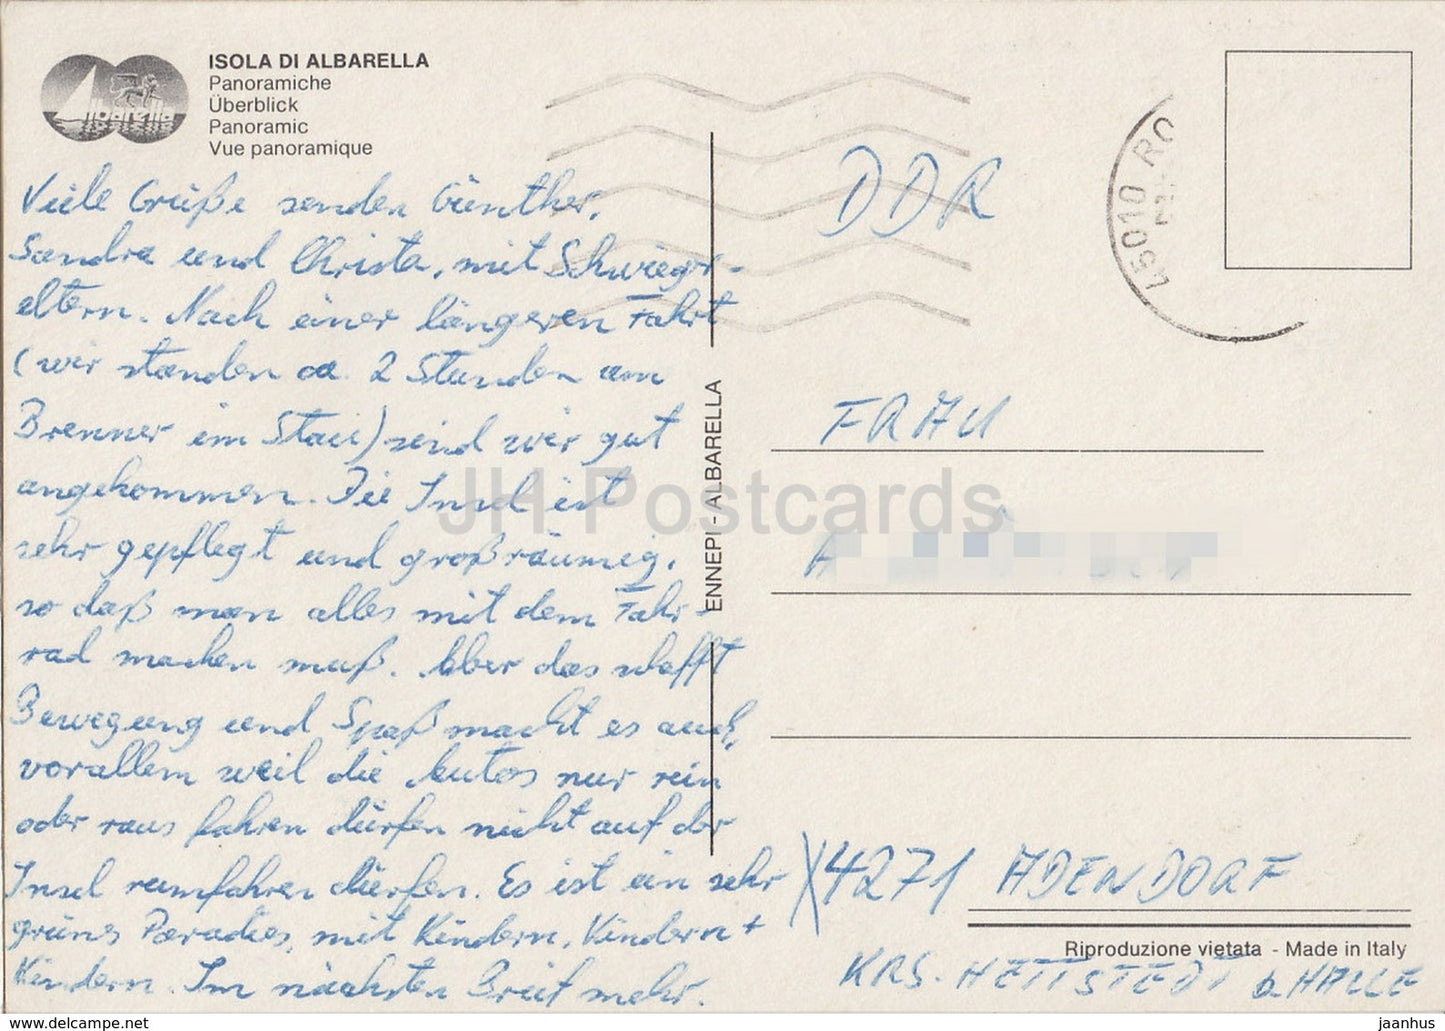 ISOLA DI ALBARELLA
Panoramiche
Überblick
Panoramic
Vue panoramique
albarella
Viele Grüße senden Günther,
Sandra und Christa, mit Schwieger-
eltern. Nach einer längeren Fahrt
(wir standen ca. 2 Stunden am
Brenner im Stau) sind wir gut
angekommen. Die Insel ist
sehr gepflegt und großräumig,
so daß man alles mit dem Fahr-
rad machen muß. Aber das schafft
Bewegung und Spaß macht es auch,
vorallem weil die Autos nur rein
oder raus fahren dürfen nicht auf der
Insel rumfahren dürfen. Es ist ein sehr
grünes Paradies, mit Kindern, Kindern +
Kindern. Im nächsten Brief mehr.
ENNEPI - ALBARELLA
45010 RO
DDR
FRAU
A
4271 ADENDORF
KRS. HETTSTEDT b. HALLE
Riproduzione vietata - Made in Italy
JH Postcards
www.delcampe.net
jaanhus